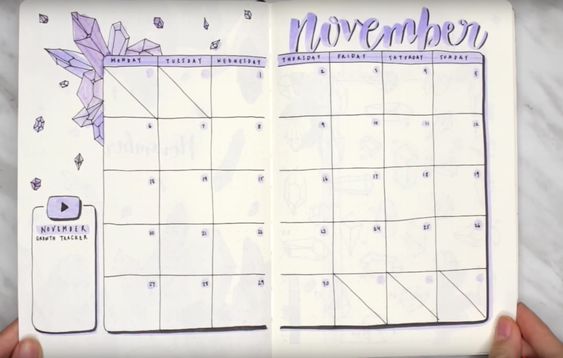 november
MONDAY TUESDAY WEDNESDAY THURSDAY FRIDAY SATURDAY SUNDAY
1 2 3 4 5
6 7 8 9 10 11 12
13 14 15 16 17 18 19
20 21 22 23 24 25 26
27 28 29 30
NOVEMBER
GROWTH TRACKER